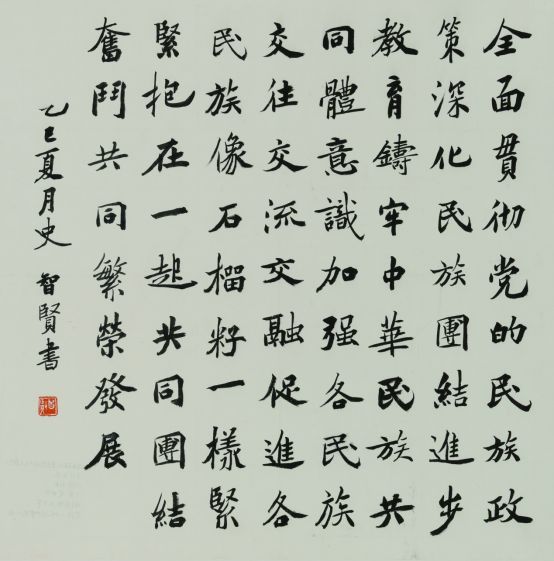 全面貫彻党的民族政
策深化民族團結進步
教育鑄牢中華民族共
同體意識加强各民族
交往交流交融促進各
民族像石榴籽一樣緊
緊抱在一起共同團結
奮鬥共同繁榮發展
乙巳夏月史智賢書